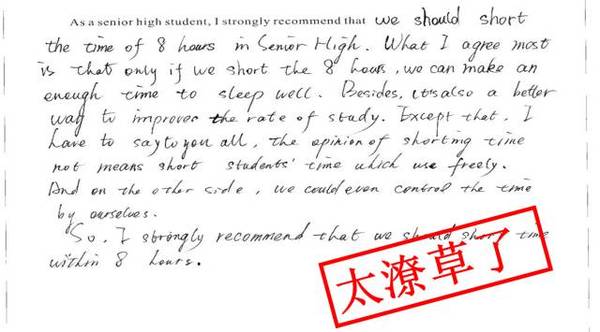 As a senior high student, I strongly recommend that we should short
the time of 8 hours in Senior High. What I agree most
is that only if we short the 8 hours, we can make an
enough time to sleep well. Besides, it's also a better
way to improve the rate of study. Except that, I
have to say to you all, the opinion of shorting time
not means short students' time which use freely.
And on the other side, we could even control the time
by ourselves.
So, I strongly recommend that we should short time
within 8 hours.
太潦草了